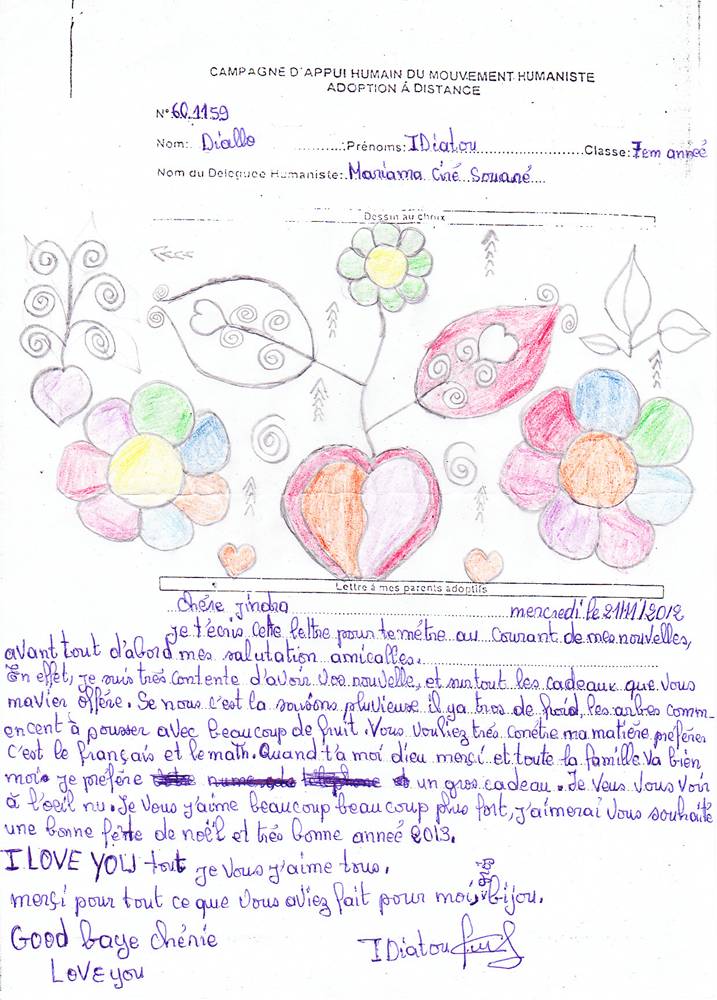 CAMPAGNE D'APPUI HUMAIN DU MOUVEMENT HUMANISTE
ADOPTION Á DISTANCE
N° 60.1159
Nom: Diallo Prénoms: IDiatou Classe: 7em anneé
Nom du Deleguee Humaniste: Mariama Ciré Souané
Dessin au choix
Lettre à mes parents adoptifs
chére jindra mercredi le 21/11/2012
je t'ecris cette lettre pour temétre au courant de mes nouvelles,
avant tout d'abord mes salutation amicalles.
En effet, je suis trés contente d'avoir vos nouvelle, et surtout les cadeaux que vous
mavier offére. Se nous c'est la saisons pluvieuse il ya tros de froid, les arbres comm-
encent à pousser avec beaucoup de fruit. Vous vouliez trés conétre ma matiére préferer
c'est le français et le math. Quand t'a moi dieu merçi et toute la famille va bien
mois je préfére un gros cadeau. Je veus vous voir
à l'oeil nu. Je vous j'aime beaucoup beaucoup plus fort, j'aimerai vous souhaite
une bonne féte de noêl et trés bonne anneé 2013.
I LOVE YOU tout je vous j'aime tous.
merçi pour tout ce que vous aviez fait pour moi, bijou.
Good baye chérie
IDiatou
Love you